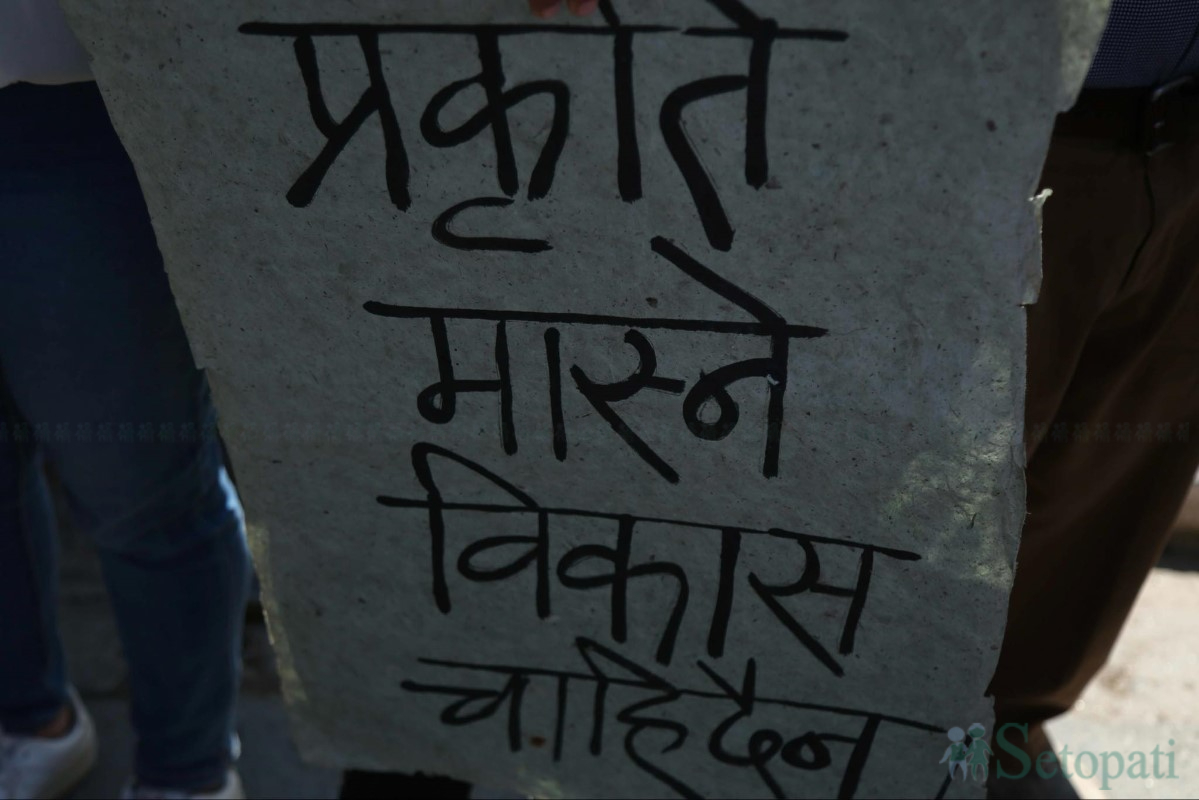 प्रकृति
मास्ने
विकास
चाहिदैन
Setopati